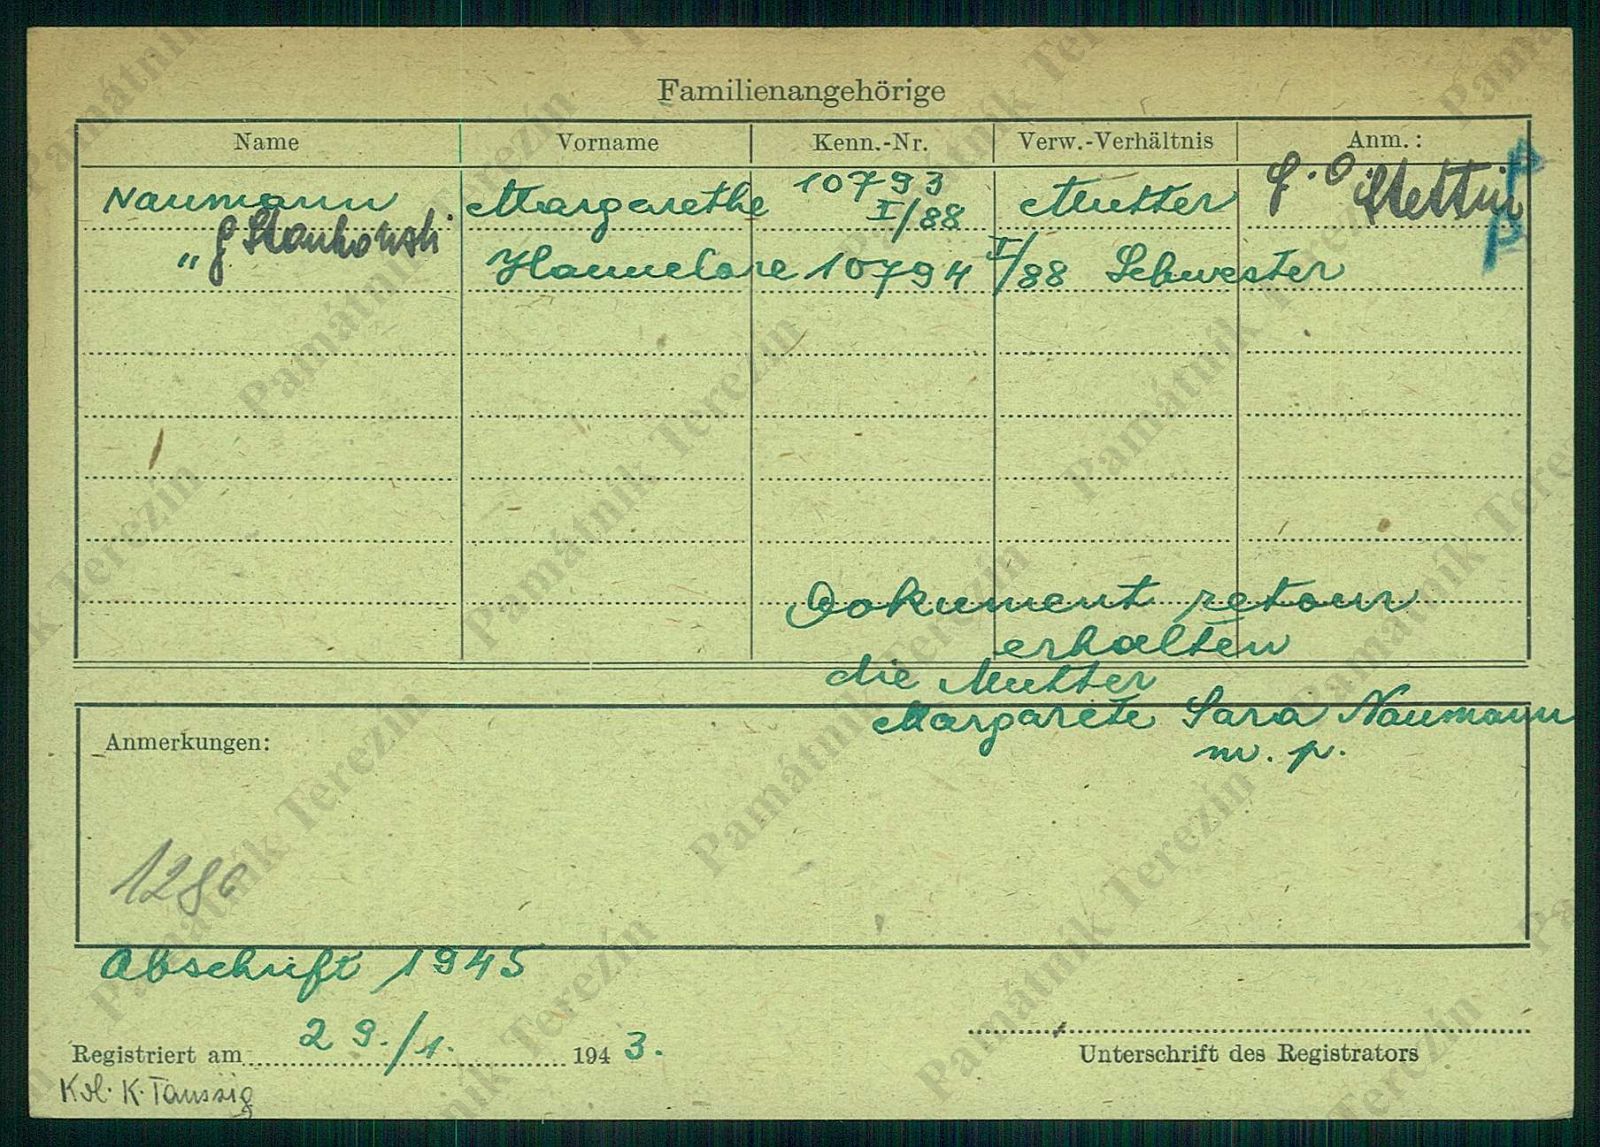 Familienangehörige
Name Vorname Kenn.-Nr. Verw.-Verhältnis Anm.:
Naumann Margarethe 10793 I/88 Mutter G.O Stettin
g Stankowski
" Hannelore 10794 I/88 Schwester
Dokument retour
erhalten
die Mutter
Margarete Sara Naumann
m. p.
Anmerkungen:
Abschrift 1945
Registriert am 29./1. 1943.
Unterschrift des Registrators
K. Taussig
Památník Terezín